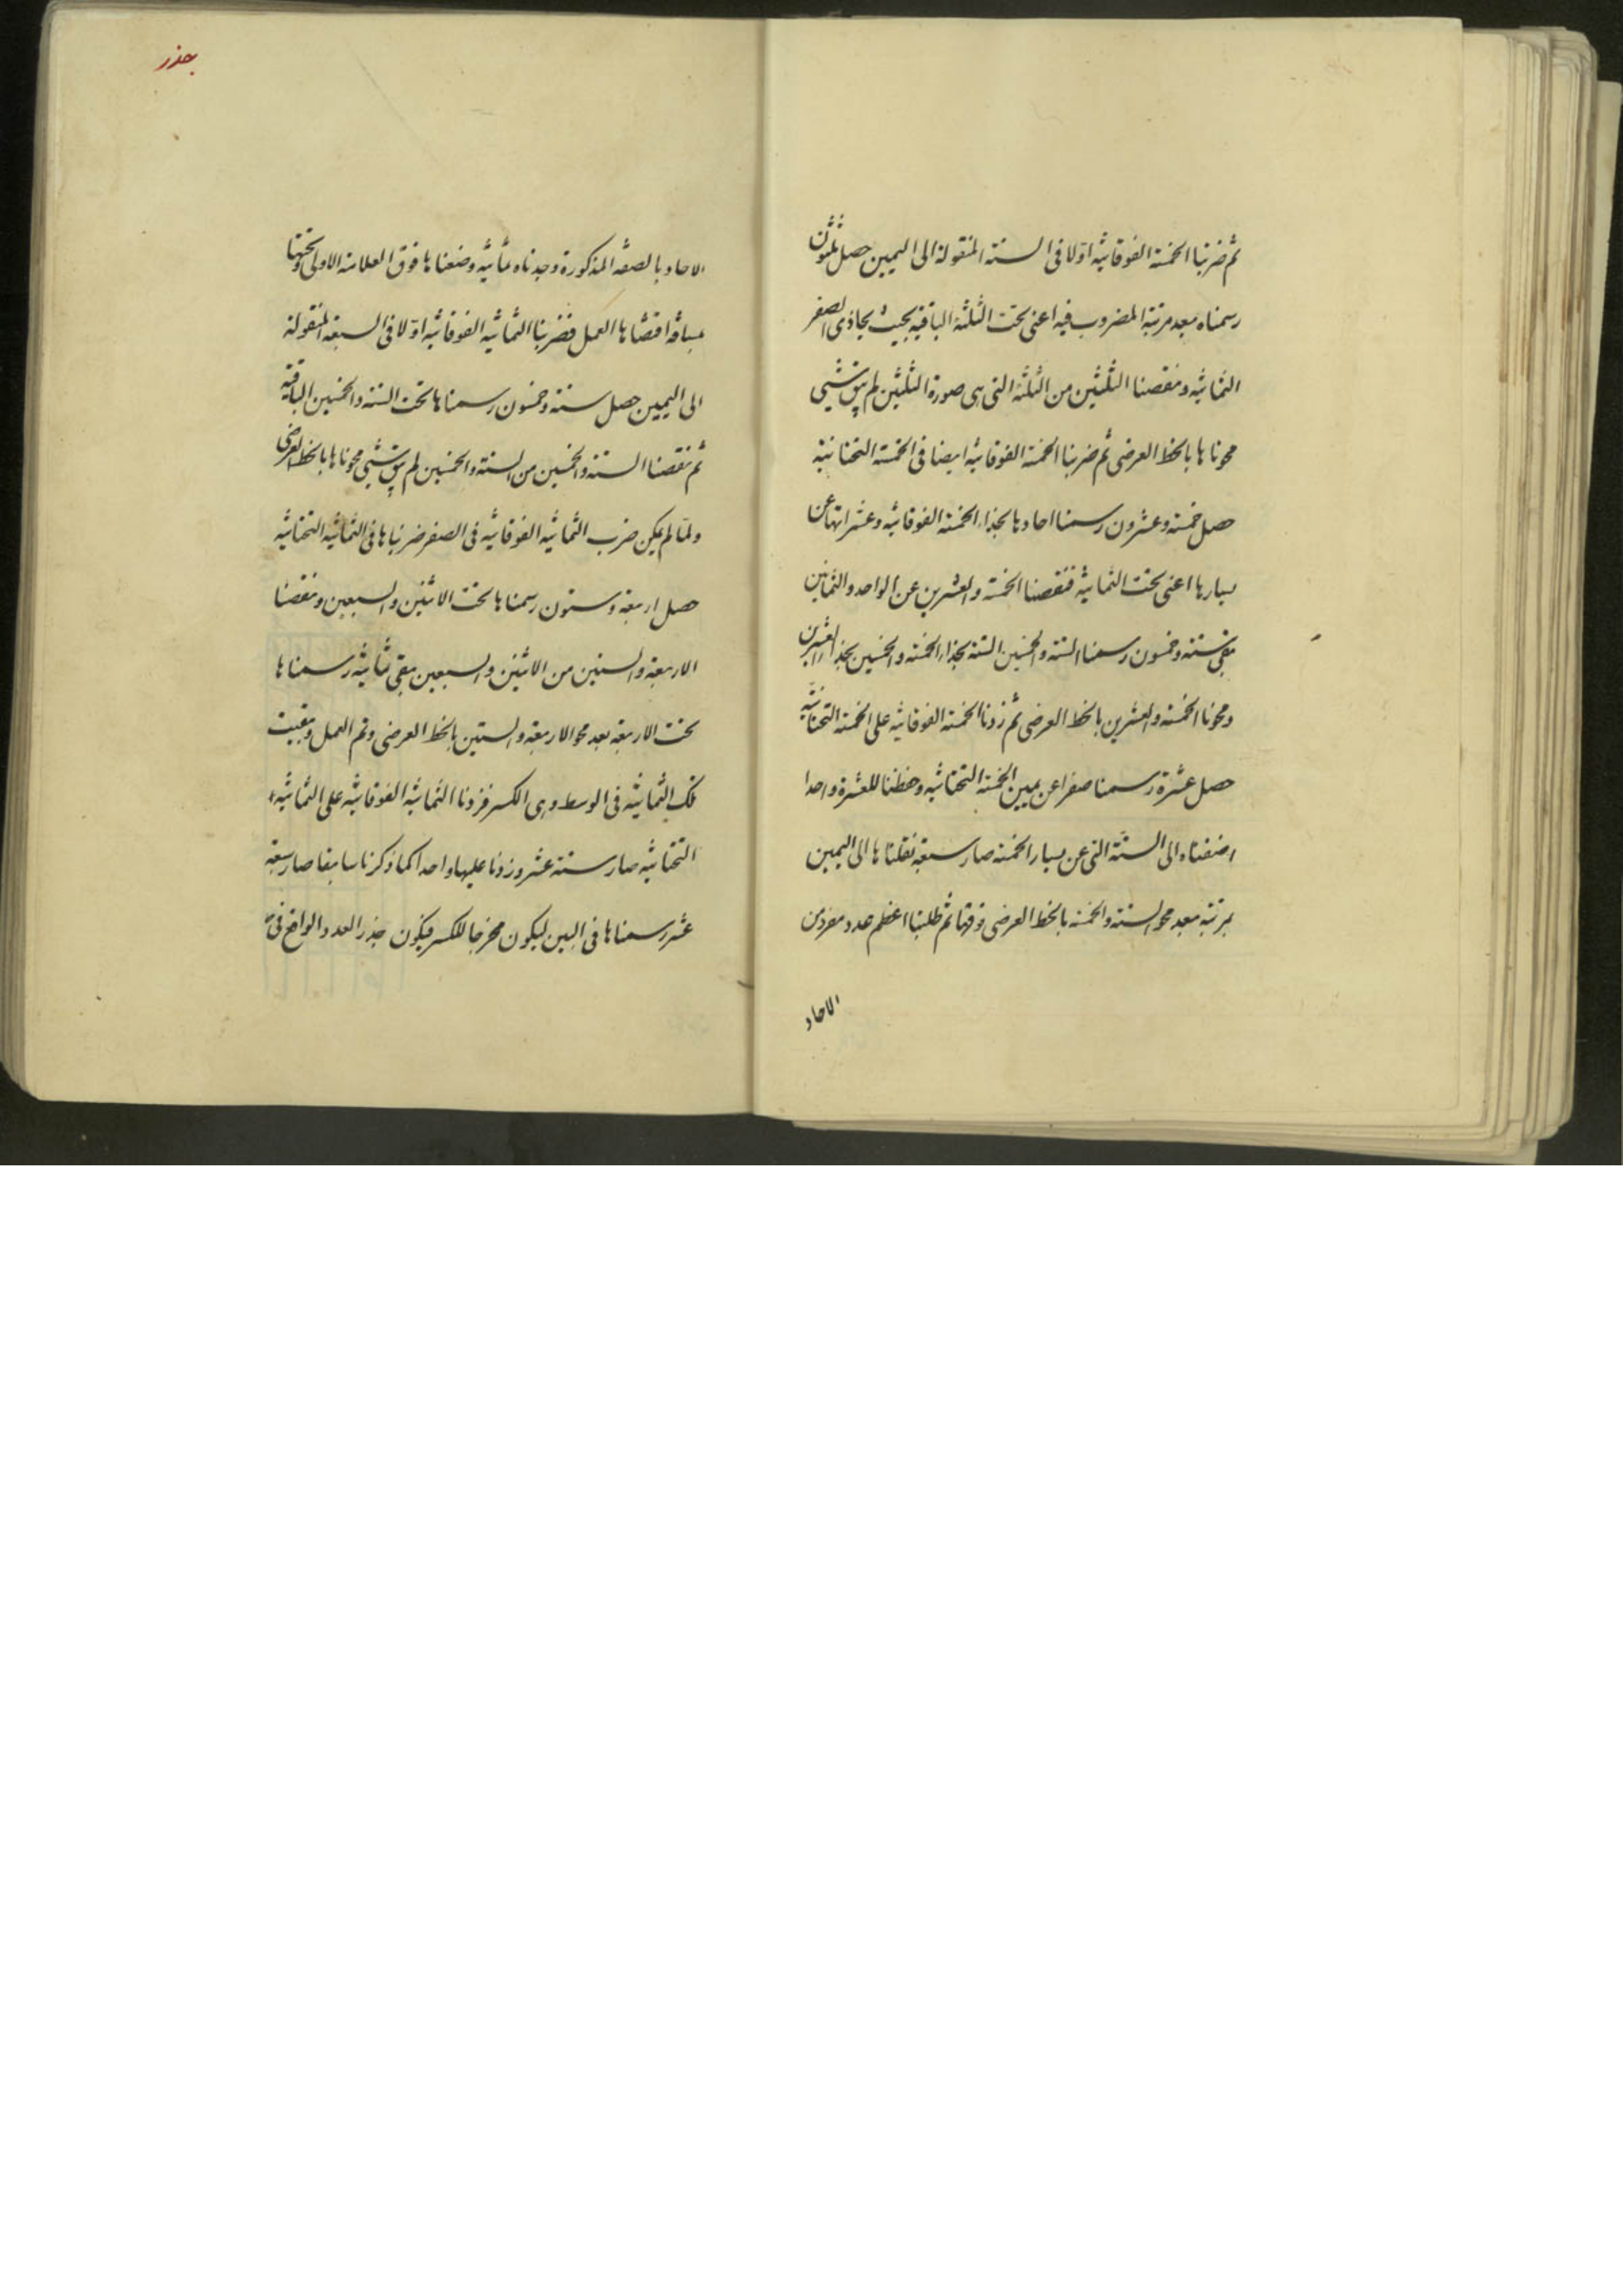 ثم ضربنا الخمسة الفوقانيه اولا فى الستة المنقولة الى اليمين حصل ثلثون
رسمناه بعد مرتبة المضروب فيه اعنى تحت الثلثة الباقية بحيث يحاذى الصفر
الثمانيه ونقصنا الثلثين من الثلثة التى هى صورة الثلثين لم يبق شئ
محوناها بالخط العرضى ثم ضربنا الخمسة الفوقانيه ايضا فى الخمسة التحتانية
حصل خمسة وعشرون رسمنا احادها بحذاء الخمسة الفوقانيه وعشراتها عن
يسارها اعنى تحت الثمانيه فنقصنا الخمسة والعشرين عن الواحد والثمانين
بقى ستة وخمسون رسمنا الستة والخمسين الستة بحذاء الخمسة والخمسين بحذاء العشرين
ومحونا الخمسة والعشرين بالخط العرضى ثم زدنا الخمسة الفوقانيه على الخمسة التحتانية
حصل عشرة رسمنا صفرا عن يمين الخمسة التحتانيه وحفظنا للعشرة واحدا
اضفناه الى الستة التى عن يسار الخمسة صار سبعة نقلناها الى اليمين
بمرتبة بعد محو الستة والخمسة بالخط العرضى فوقها ثم طلبنا اعظم عدد مفرد من
الاحاد
بجذر
الاحاد بالصفة المذكورة وجدناه ثمانيه وضعناها فوق العلامة الاولى وتحتها
بمسافة اقتضاها العمل فضربنا الثمانيه الفوقانيه اولا فى السبعة المنقولة
الى اليمين حصل ستة وخمسون رسمناها تحت الستة والخمسين الباقية
ثم نقصنا الستة والخمسين من الستة والخمسين لم يبق شئ محوناها بالخط العرضى
ولما لم يمكن ضرب الثمانيه الفوقانيه فى الصفر ضربناها فى الثمانيه التحتانيه
حصل اربعة وستون رسمناها تحت الاثنين والسبعين ونقصنا
الاربعة والستين من الاثنين والسبعين بقى ثمانيه رسمناها
تحت الاربعة بعد محو الاربعة والستين بالخط العرضى وتم العمل وبقيت
تلك الثمانيه فى الوسط وهى الكسر فزدنا الثمانيه الفوقانيه على الثمانيه
التحتانيه صار ستة عشر وزدنا عليها واحدا كما ذكرنا سابقا صار سبعة
عشر رسمناها فى البين ليكون مخرجا للكسر فيكون جذر العدد الواقع فى